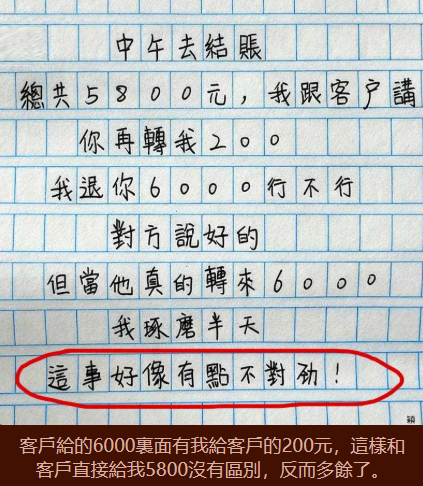 中午去結賬
總共5800元，我跟客户講
你再轉我200
我退你6000行不行
對方說好的
但當他真的轉來6000
我琢磨半天
這事好像有點不對劲！
穎
客戶給的6000裏面有我給客戶的200元，這樣和
客戶直接給我5800沒有區別，反而多餘了。